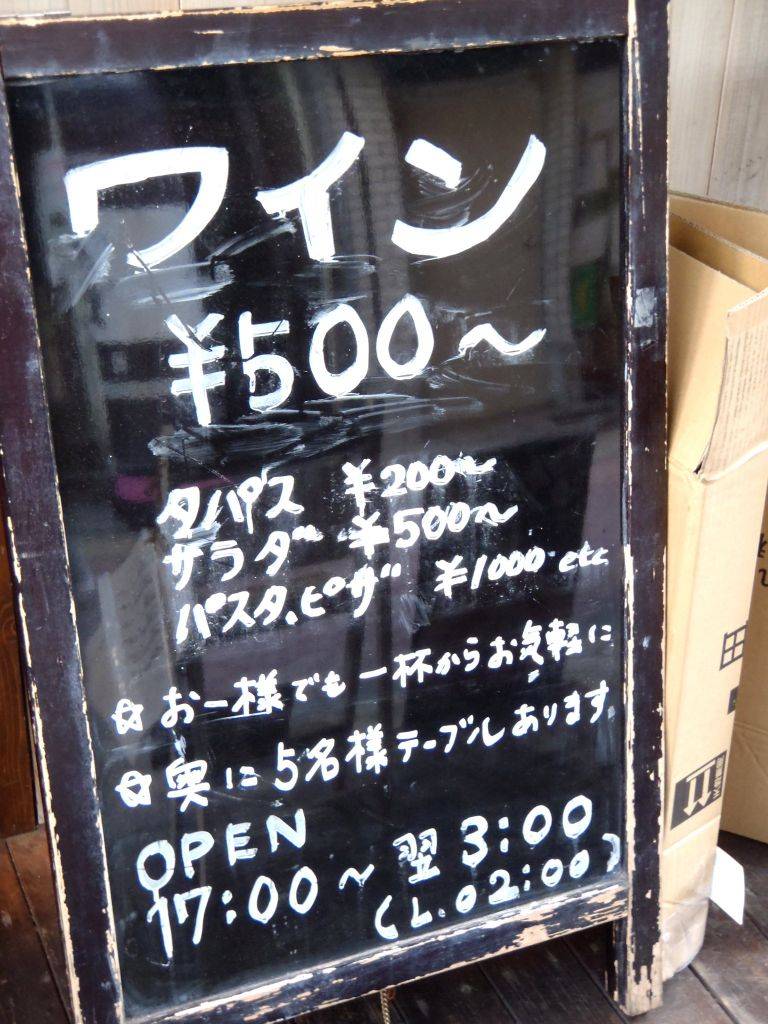 ワイン
¥500〜
タパス ¥200〜
サラダ ¥500〜
パスタ.ピザ ¥1000 etc
☆お一様でも一杯からお気軽に
☆奥に5名様テーブルあります
OPEN
17:00〜翌3:00
(L.O2:00)